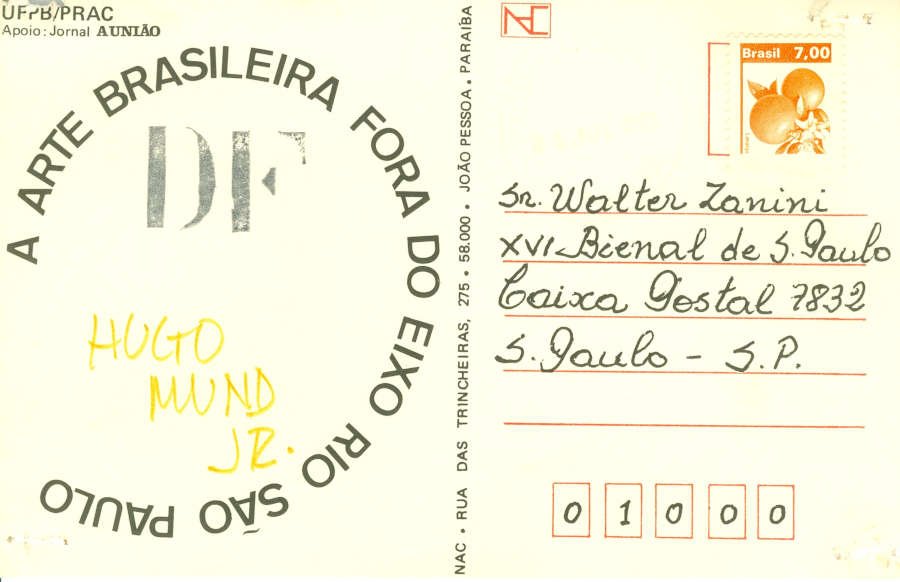 UFPB/PRAC
Apoio: Jornal A UNIÃO
A ARTE BRASILEIRA FORA DO EIXO RIO SÃO PAULO
DF
HUGO
MUND
JR.
NAC • RUA DAS TRINCHEIRAS, 275 • 58.000 • JOÃO PESSOA • PARAÍBA
NAC
Brasil 7,00
Sr. Walter Zanini
XVI Bienal de S. Paulo
Caixa Postal 7832
S. Paulo - S.P.
0 1 0 0 0